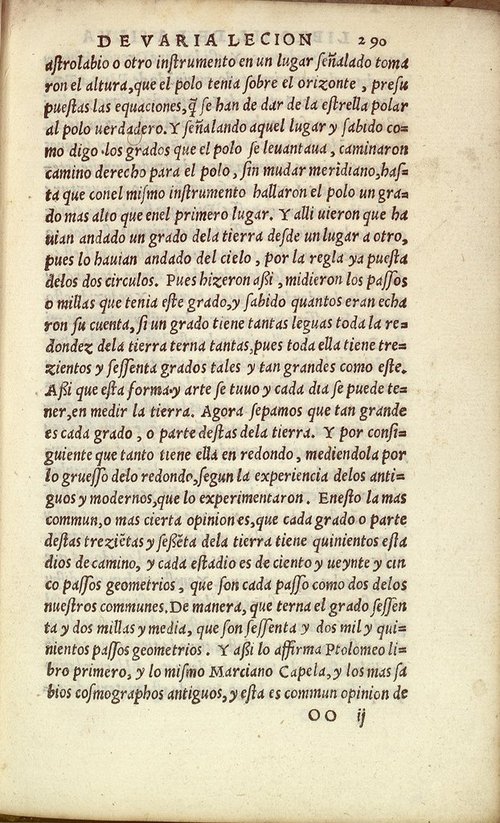 DE VARIA LECION 290
aſtrolabio o otro inſtrumento en un lugar ſeñalado toma
ron el altura, que el polo tenia ſobre el orizonte , preſu
pueſtas las equaciones, q̃ ſe han de dar de la eſtrella polar
al polo uerdadero. Y ſeñalando aquel lugar y ſabido co=
mo digo los grados que el polo ſe leuantaua , caminaron
camino derecho para el polo , ſin mudar meridiano, haſ=
ta que con el miſmo inſtrumento hallaron el polo un gra=
do mas alto que en el primero lugar. Y alli uieron que ha
uian andado un grado dela tierra desde un lugar a otro,
pues lo hauian andado del cielo , por la regla ya pueſta
delos dos circulos. Pues hizeron aßi , midieron los paſſos
o millas que tenia eſte grado, y ſabido quantos eran echa
ron ſu cuenta, ſi un grado tiene tantas leguas toda la re=
dondez dela tierra terna tantas, pues toda ella tiene tre=
zientos y ſeſſenta grados tales y tan grandes como eſte.
Aßi que eſta forma y arte ſe tuuo y cada dia ſe puede te=
ner, en medir la tierra. Agora ſepamos que tan grande
es cada grado , o parte deſtas dela tierra. Y por conſi=
guiente que tanto tiene ella en redondo, mediendola por
lo grueſſo delo redondo, ſegun la experiencia delos anti=
guos y modernos, que lo experimentaron. En eſto la mas
commun, o mas cierta opinion es, que cada grado o parte
deſtas treziẽtas y ſeßẽta dela tierra tiene quinientos eſta
dios de camino, y cada eſtadio es de ciento y ueynte y cin
co paſſos geometrios , que ſon cada paſſo como dos delos
nueſtros communes. De manera, que terna el grado ſeſſen
ta y dos millas y media, que ſon ſeſſenta y dos mil y qui=
nientos paſſos geometrios. Y aßi lo affirma Ptolomeo li=
bro primero, y lo miſmo Marciano Capela, y los mas ſa
bios coſmographos antiguos, y eſta es commun opinion de
OO ij